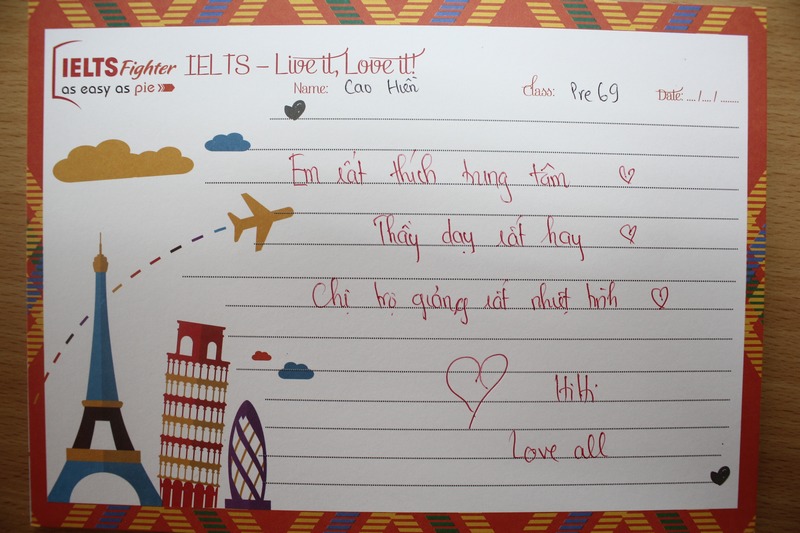 IELTS Fighter IELTS - Live it, Love it!
as easy as pie
Name: Cao Hiền Class: Pre 69 Date: .../.../......
Em rất thích trung tâm
Thầy dạy rất hay
Chị trợ giảng rất nhiệt tình
Hihi
Love all